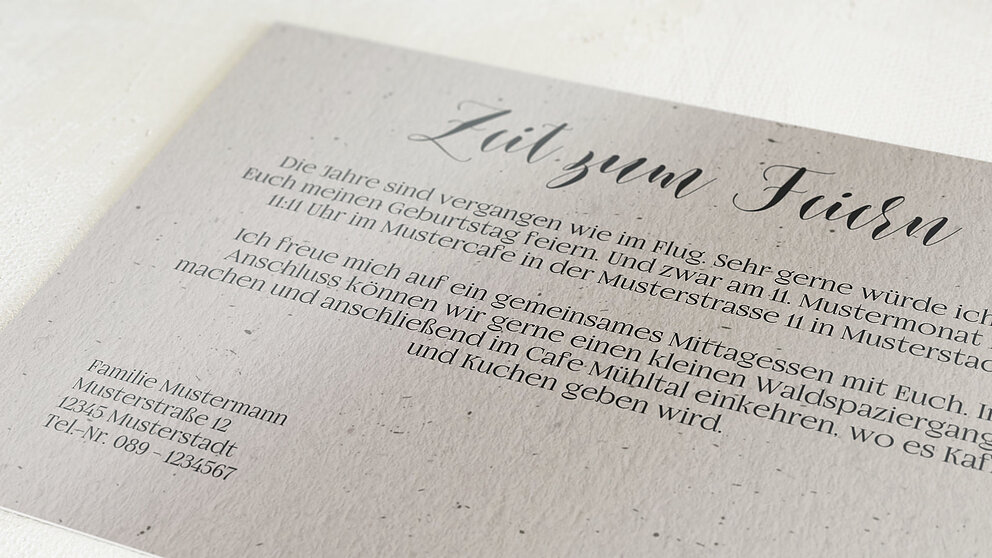 Zeit zum Feiern
Die Jahre sind vergangen wie im Flug. Sehr gerne würde ich
Euch meinen Geburtstag feiern. Und zwar am 11. Mustermonat
11:11 Uhr im Mustercafe in der Musterstrasse 11 in Musterstad
Ich freue mich auf ein gemeinsames Mittagessen mit Euch. I
Anschluss können wir gerne einen kleinen Waldspaziergang
machen und anschließend im Cafe Mühltal einkehren, wo es Kaf
und Kuchen geben wird.
Familie Mustermann
Musterstraße 12
12345 Musterstadt
Tel.-Nr. 089 - 1234567